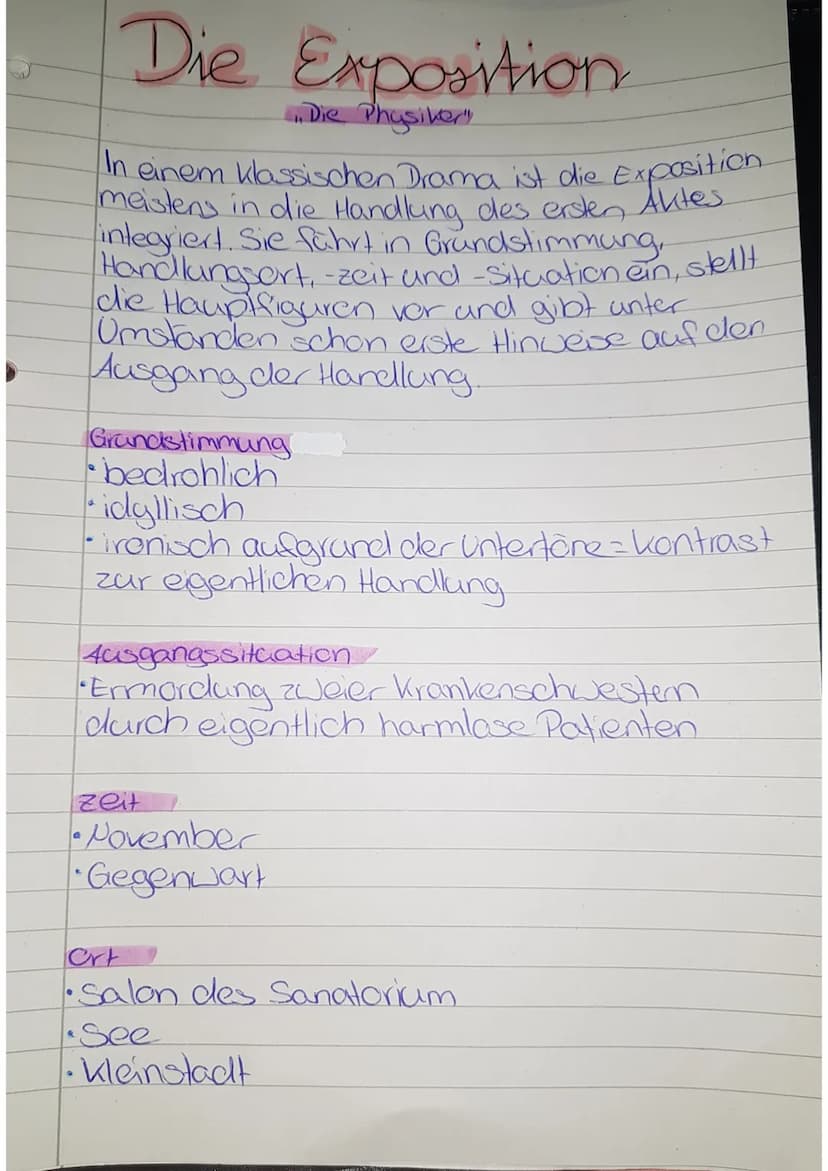 Die Exposition
"Die Physiker"
In einem klassischen Drama ist die Exposition
meistens in die Handlung des ersten Aktes
integriert. Sie führt in Grundstimmung,
Handlungsort, -zeit und -situation ein, stellt
die Hauptfiguren vor und gibt unter
Umständen schon erste Hinweise auf den
Ausgang der Handlung.
Grundstimmung
• bedrohlich
• idyllisch
• ironisch aufgrund der Untertöne = Kontrast
zur eigentlichen Handlung
Ausgangssituation
• Ermordung zweier Krankenschwestern
durch eigentlich harmlose Patienten
Zeit
• November
• Gegenwart
Ort
• Salon des Sanatorium
• See
• Kleinstadt